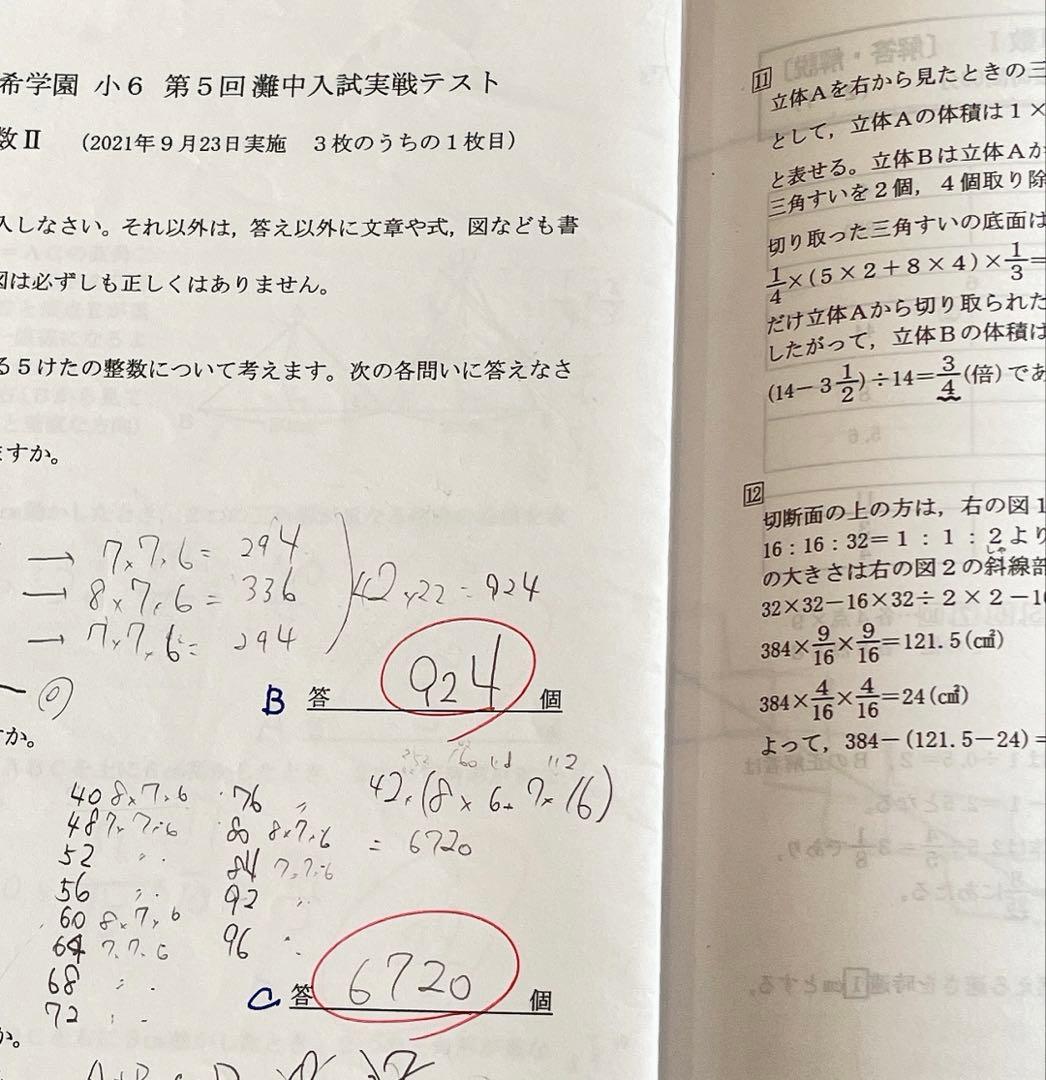 希学園 小6 第5回灘中入試実戦テスト
数Ⅱ (2021年9月23日実施 3枚のうちの1枚目)
入しなさい。それ以外は，答え以外に文章や式，図なども書
図は必ずしも正しくはありません。
る5けたの整数について考えます。次の各問いに答えなさ
ますか。
→ 7×7×6= 294
→ 8×7×6= 336
→ 7×7×6= 294
42×22=924
B 答 924 個
すか。
42×(8×6+7×16)
= 6720
40 8×7×6
48 7×7×6
52 〃
56 〃
60 8×7×6
64 7×7×6
68 〃
72 〃
76 〃
80 8×7×6
84 7×7×6
92 〃
96 〃
C 答 6720 個
か。
11
立体Aを右から見たときの三
として，立体Aの体積は1×
と表せる。立体Bは立体Aか
三角すいを2個，4個取り除
切り取った三角すいの底面は
1/4×(5×2+8×4)×1/3=
だけ立体Aから切り取られた
したがって，立体Bの体積は
(14－3 1/2)÷14=3/4(倍)であ
12
切断面の上の方は，右の図1
16：16：32＝1：1：2より
の大きさは右の図2の斜線部
32×32－16×32÷2×2－16
384×9/16×9/16=121.5(c㎡)
384×4/16×4/16=24(c㎡)
よって，384－(121.5－24)=